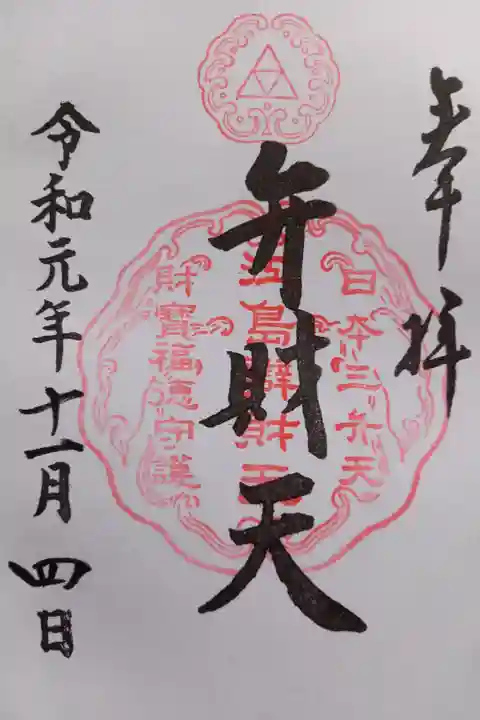 奉拝
弁財天
日本三弁天
江島辨財天
財寶福徳守護
令和元年十一月四日